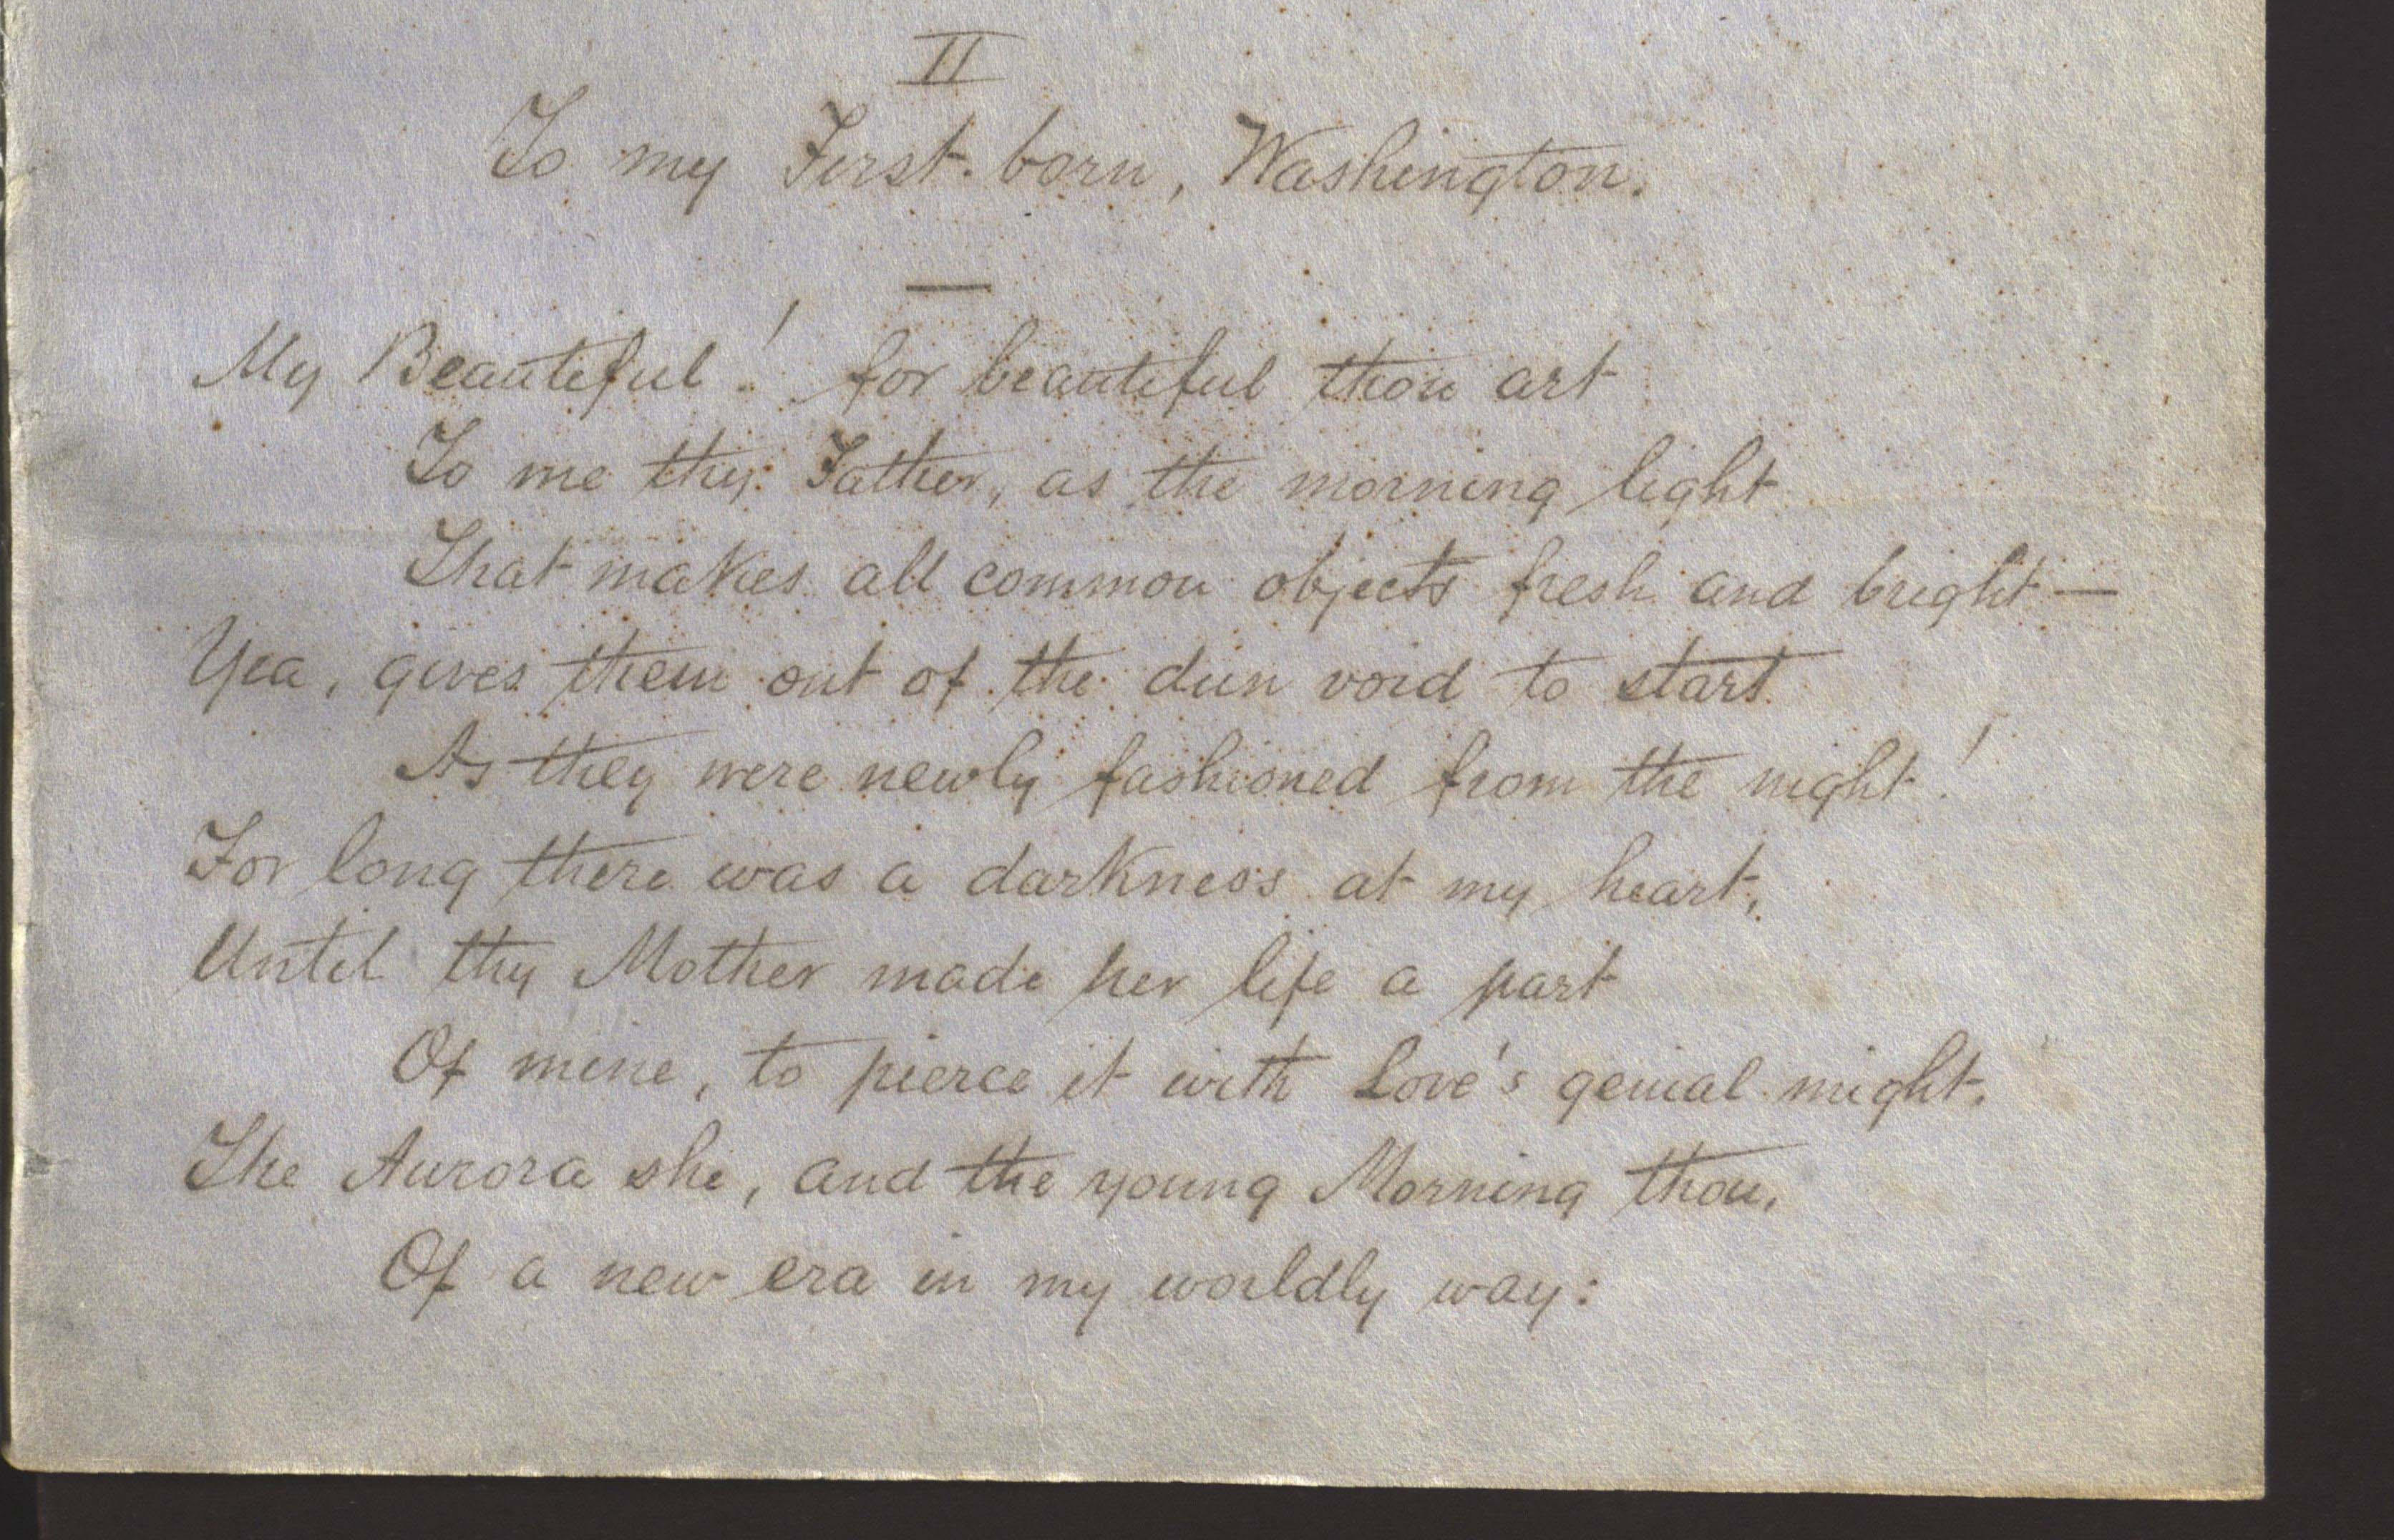 II
To my First-born, Washington.
—
My Beautiful! for beautiful thou art
To me thy Father, as the morning light
That makes all common objects fresh and bright—
Yea, gives them out of the dun void to start
As they were newly fashioned from the night!
For long there was a darkness at my heart,
Until thy Mother made her life a part
Of mine, to pierce it with Love's genial might.
The Aurora she, and the young Morning thou,
Of a new era in my worldly way: